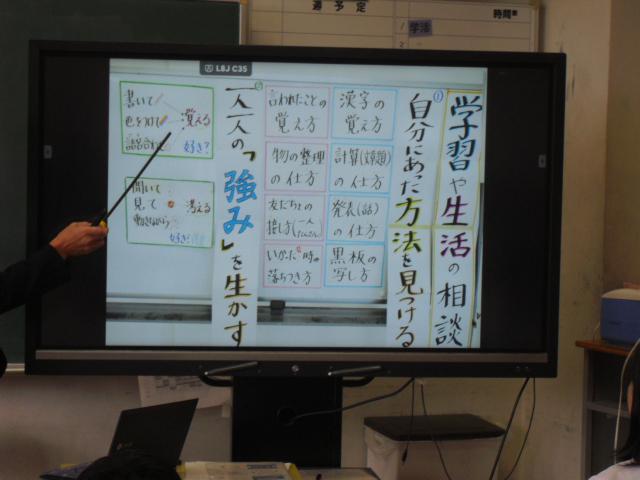 週予定
時間
1 学活
2
L8J C35
学習や生活の相談
①自分にあった方法を見つける
漢字の
覚え方
計算(文章題)
の仕方
発表(話)
の仕方
黒板の
写し方
言われたことの
覚え方
物の整理
の仕方
友だちとの
接し方
いかった時の
落ちつき方
②一人一人の「強み」を生かす
書いて
色をつけて
話合わせ
覚える
好き?
聞いて
見て
動きながら
考える
好き?